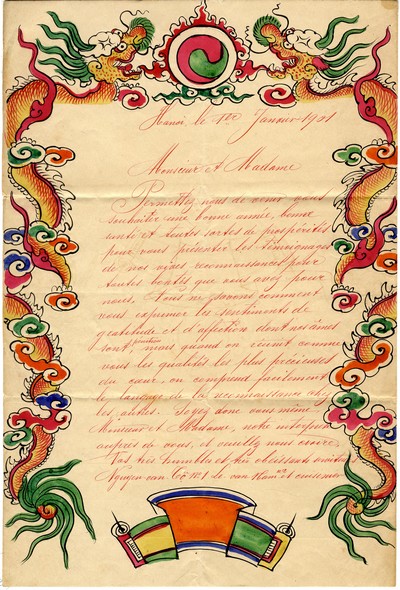 Hanoi, le 1er Janvier 1901
Monsieur et Madame
Permettez nous de venir vous
souhaiter une bonne année, bonne
santé et toutes sortes de prospérités
pour vous présenter les témoignages
de nos vives reconnaissances pour
toutes bontés que vous avez pour
nous. Nous ne savons comment
vous exprimer les sentiments de
gratitude et d'affection dont nos âmes
sont pénétrées, mais quand on réunit comme
vous les qualités les plus précieuses
du cœur, on comprend facilement
le langage de la reconnaissance chez
les autres. Soyez donc vous même
Monsieur et Madame, notre interprète
auprès de vous, et veuillez nous croire
Vos très humbles et très obéissants serviteurs
Nguyen van Cô